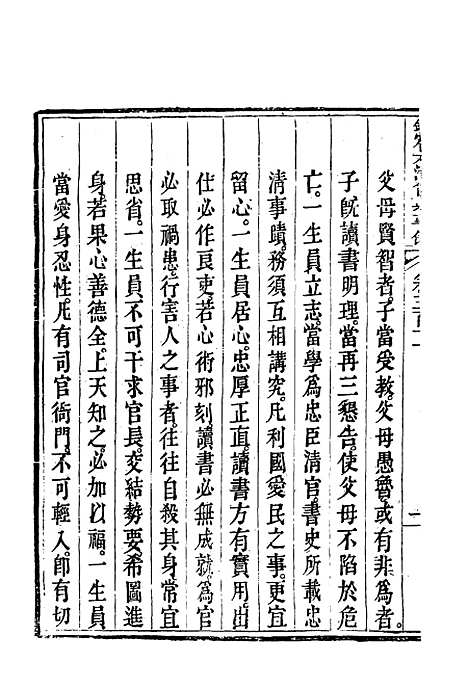 父母賢智者。子當受教。父母愚魯。或有非為者。
子既讀書明理。當再三懇告。使父母不陷於危
亡。一生員立志。當學為忠臣清官。書史所載忠
清事蹟。務須互相講究。凡利國愛民之事。更宜
留心。一生員居心。忠厚正直。讀書方有實用。出
仕必作良吏。若心術邪刻。讀書必無成就。為官
必取禍患。行害人之事者。往往自殺其身。常宜
思省。一生員不可干求官長。交結勢要。希圖進
身。若果心善德全。上天知之。必加以福。一生員
當愛身忍性。凡有司官衙門。不可輕入。即有切